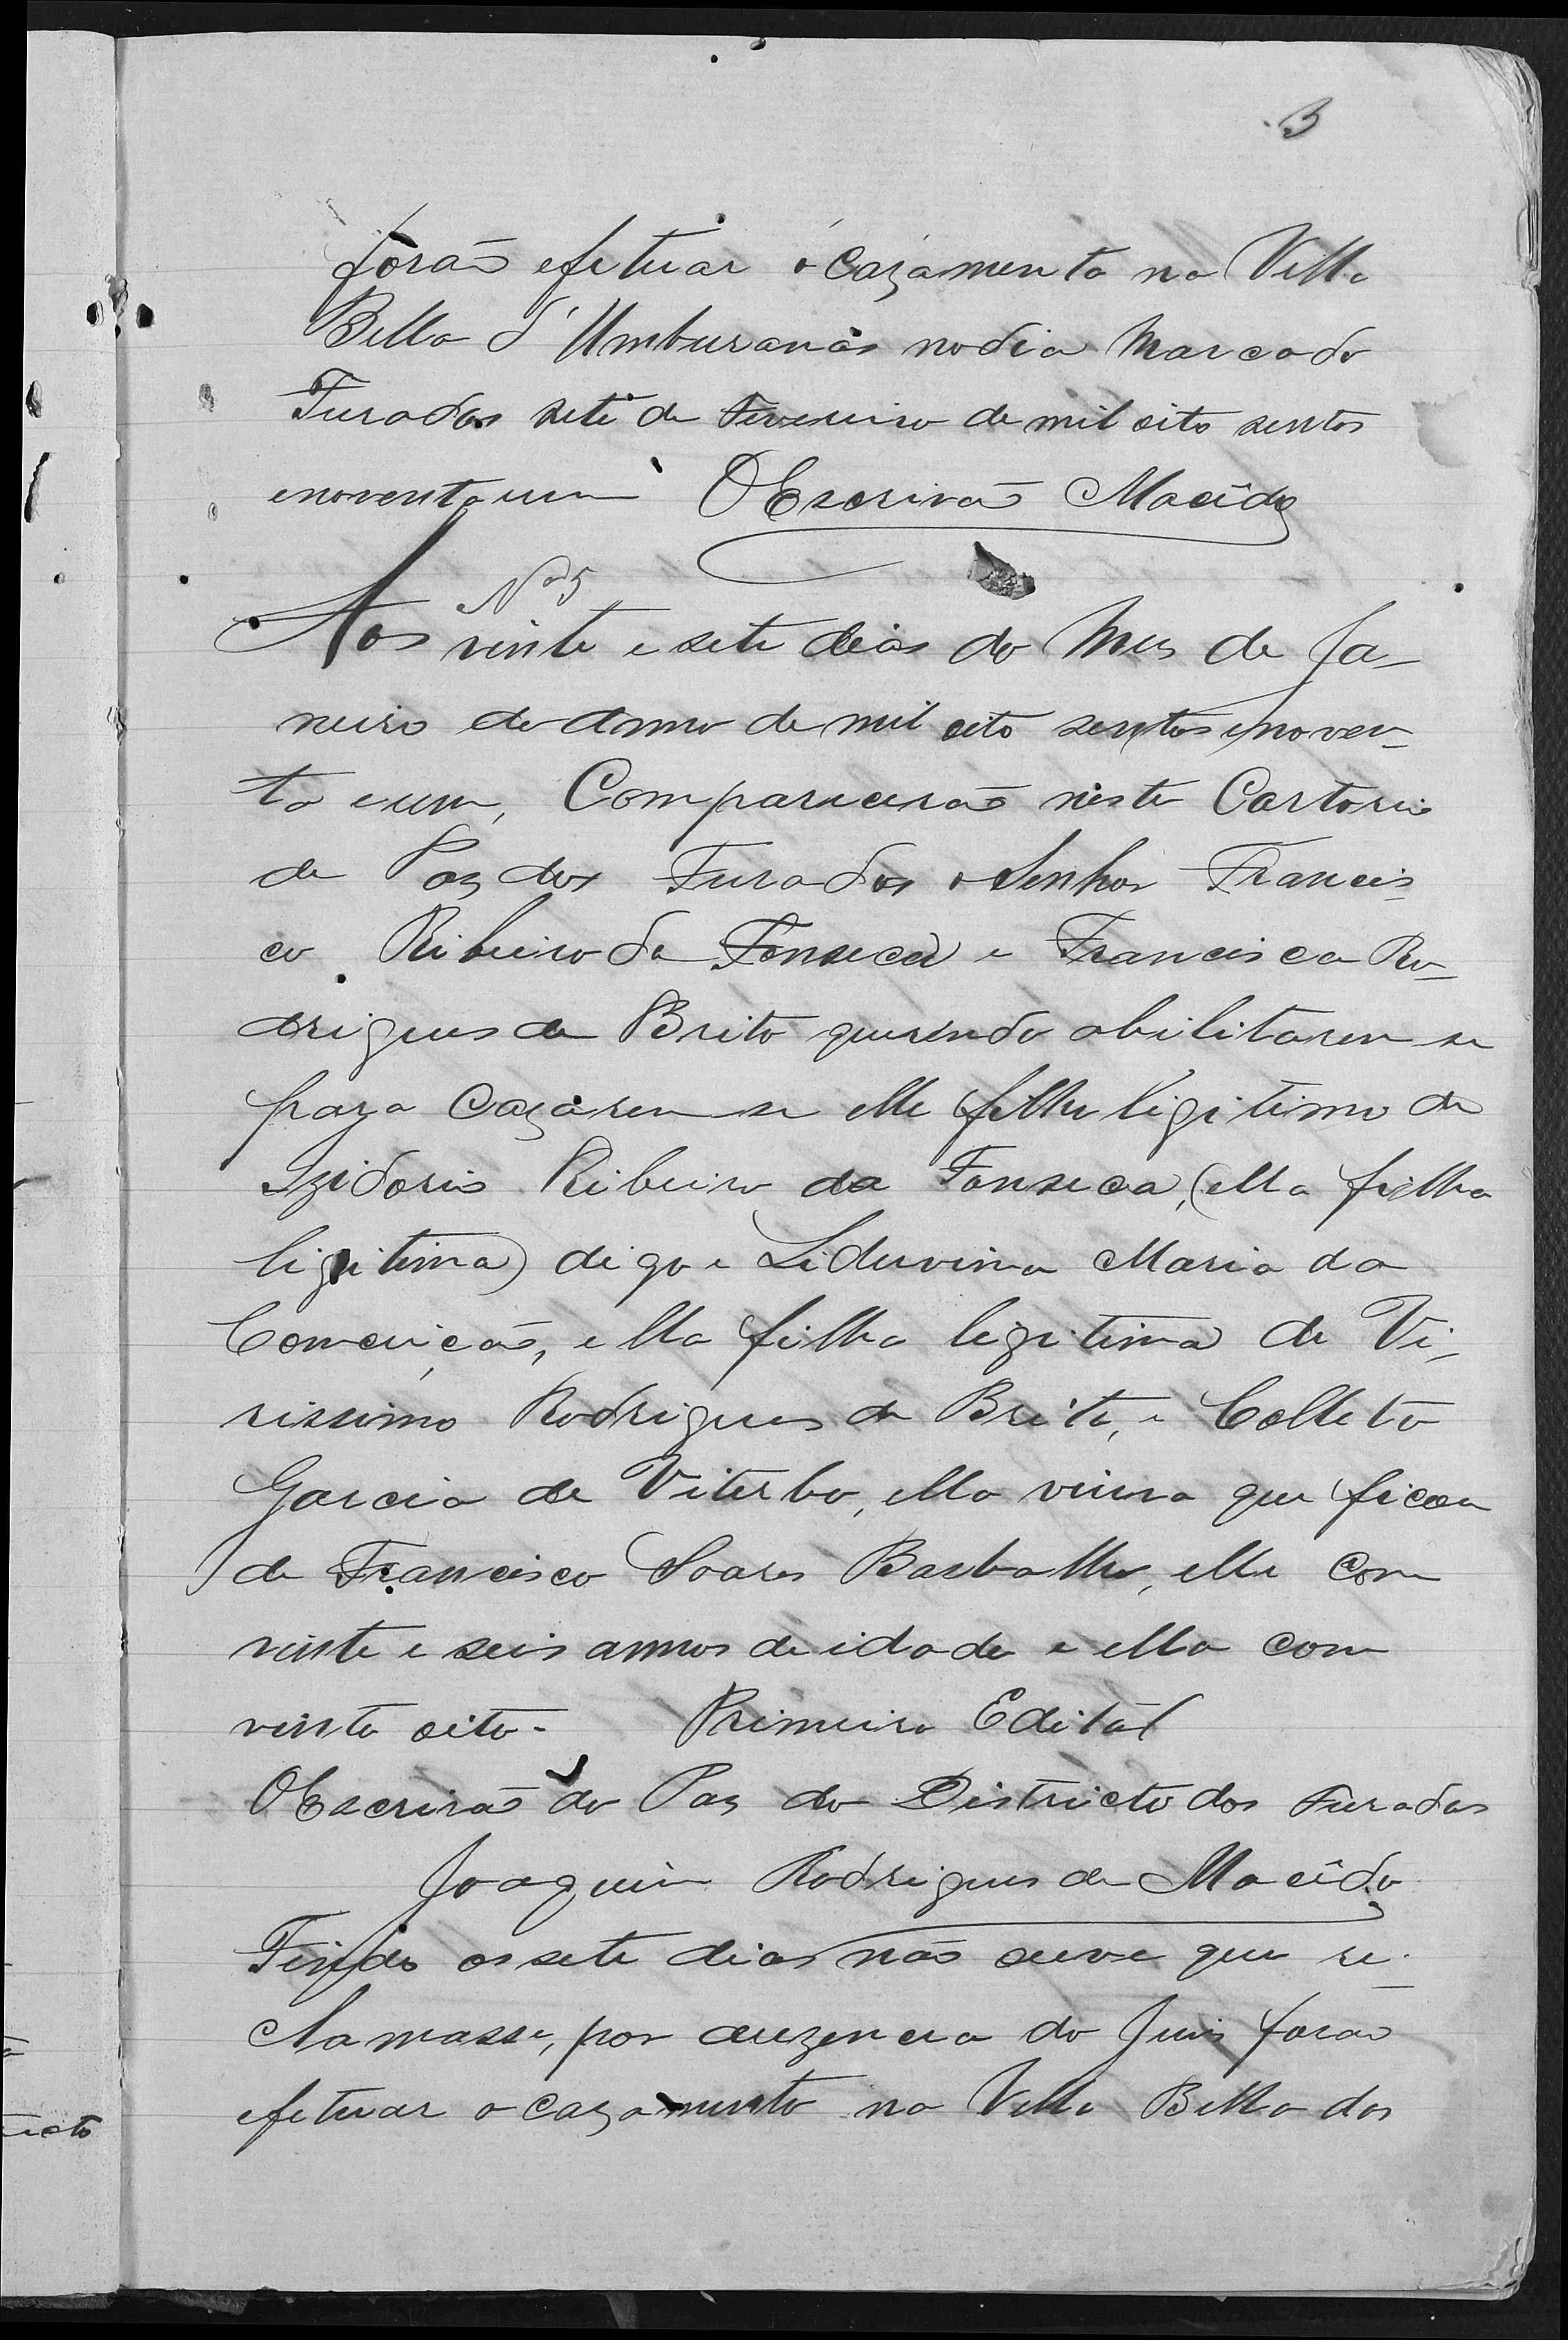 3
forão efetuar o cazamento na Villa
Bella d'Umburanas no dia Marcado
Furados sete de Fevereiro de mil oito sentos
enoventa um O Escrivão Macêdo
Nº 5
Aos vinte e sete dias do Mes de Ja-
neiro do Anno de mil oito sentos e noven-
ta e um, Comparecerão neste Cartorio
de Paz dos Furados o Senhor Francis-
co Ribeiro da Fonseca e Francisca Ro-
drigues de Brito querendo abilitarem se
para Cazarem se elle filho ligitimo de
Izidorio Ribeiro da Fonseca, (ella filha
ligitima) digo e Liduvina Maria da
Comceição, ella filha legitima de Vi-
rissimo Rodrigues de Brito, e Colleta
Garcia de Viterbo, ella viuva que ficou
de Francisco Soares Barbalho, elle com
vinte e seis annos de idade e ella com
vinte oito. Primeiro Edital
O Escrivão do Paz do Districto dos Furados
Joaquim Rodrigues de Macêdo
Findo os sete dias não ouve que re-
clamasse, por auzencia do Juis forão
efetuar o cazamento na Villa Bella dos
icto